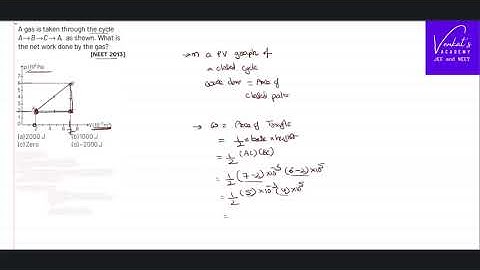 A gas is taken through the cycle
A→B→C→A, as shown. What is
the net work done by the gas?
[NEET 2013]
p(10⁵ Pa)
7
6
5
4
3
2
1
0
2 4 6 8
V(10⁻³ m³)
(a) 2000 J (b) 1000 J
(c) Zero (d) -2000 J
→ In a PV graph of
a closed cycle
work done = Area of
closed path
→ ω = Area of Triangle
= 1/2 × base × height
= 1/2 (AC) (BC)
= 1/2 (7-2) ×10⁻³ (6-2) ×10⁵
= 1/2 (5) ×10⁻³ (4) ×10⁵
=
Venkat's
ACADEMY
JEE and NEET